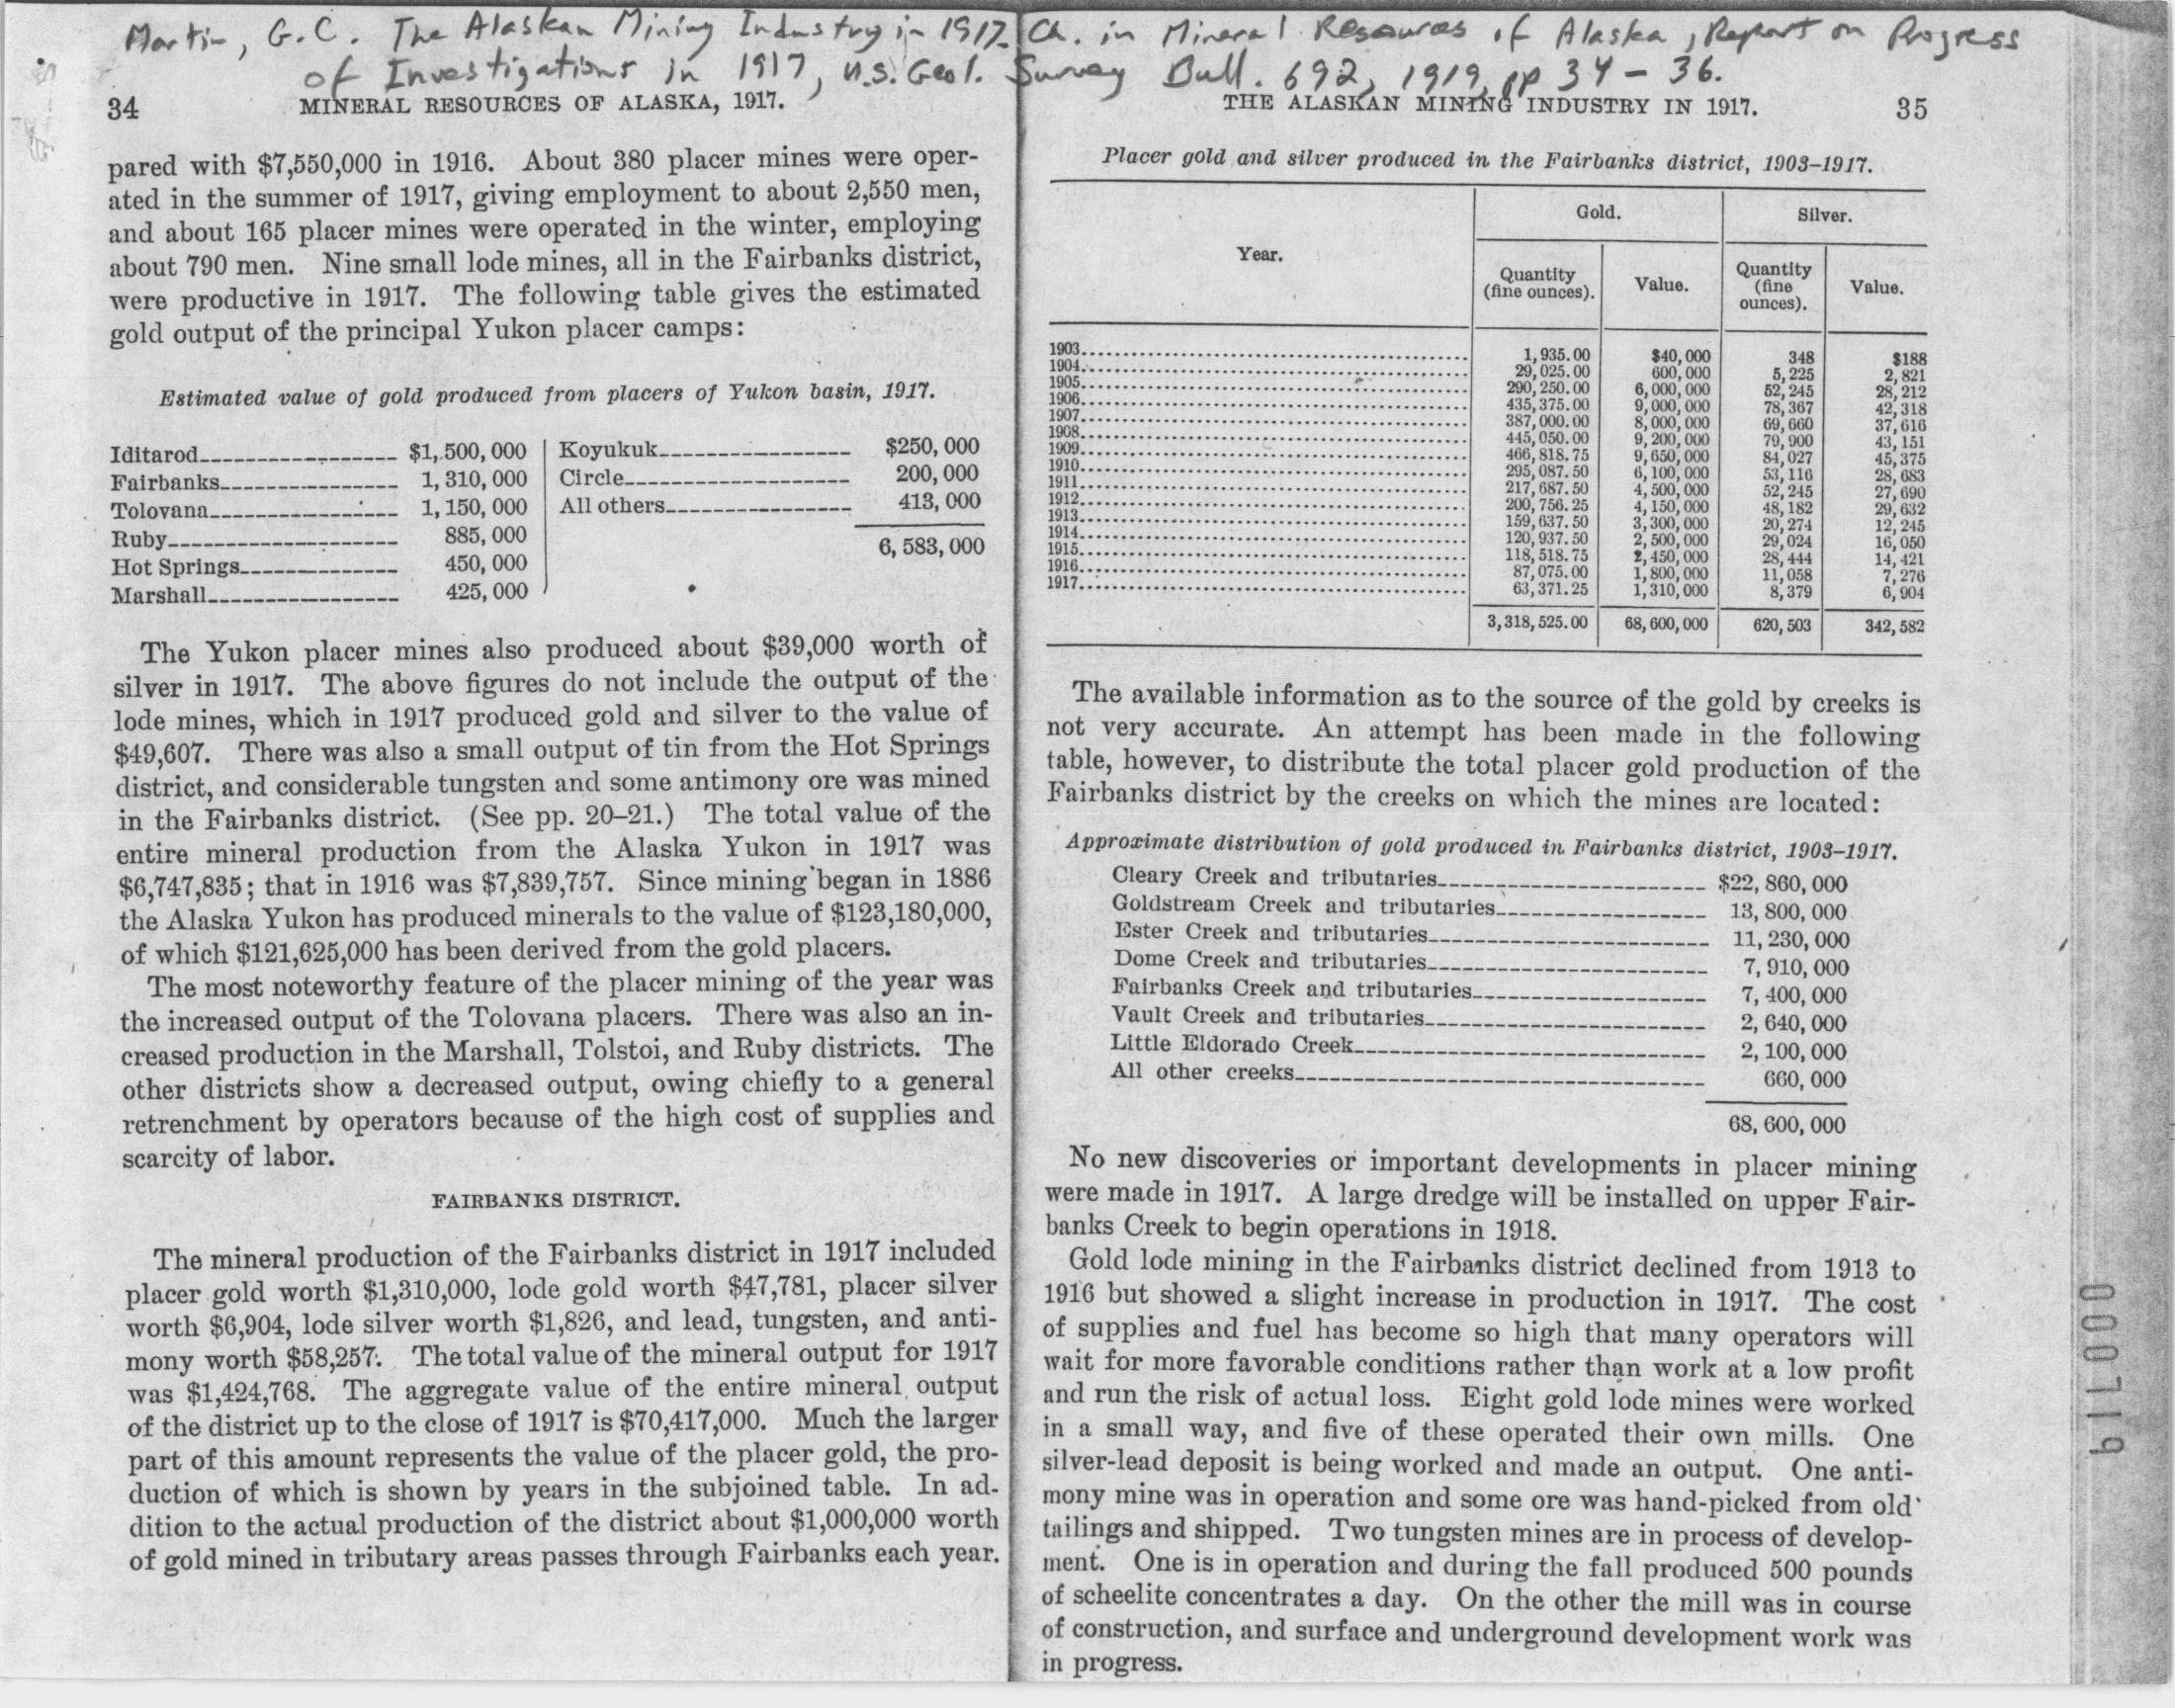 Martin, G.C. The Alaskan Mining Industry in 1917. Ch. in Mineral Resources of Alaska, Report on Progress
of Investigations in 1917, U.S. Geol. Survey Bull. 692, 1919, pp 34 - 36.
34 MINERAL RESOURCES OF ALASKA, 1917.
pared with $7,550,000 in 1916. About 380 placer mines were oper-
ated in the summer of 1917, giving employment to about 2,550 men,
and about 165 placer mines were operated in the winter, employing
about 790 men. Nine small lode mines, all in the Fairbanks district,
were productive in 1917. The following table gives the estimated
gold output of the principal Yukon placer camps:
Estimated value of gold produced from placers of Yukon basin, 1917.
Iditarod $1,500,000
Fairbanks 1,310,000
Tolovana 1,150,000
Ruby 885,000
Hot Springs 450,000
Marshall 425,000
Koyukuk $250,000
Circle 200,000
All others 413,000
6,583,000
The Yukon placer mines also produced about $39,000 worth of
silver in 1917. The above figures do not include the output of the
lode mines, which in 1917 produced gold and silver to the value of
$49,607. There was also a small output of tin from the Hot Springs
district, and considerable tungsten and some antimony ore was mined
in the Fairbanks district. (See pp. 20–21.) The total value of the
entire mineral production from the Alaska Yukon in 1917 was
$6,747,835; that in 1916 was $7,839,757. Since mining began in 1886
the Alaska Yukon has produced minerals to the value of $123,180,000,
of which $121,625,000 has been derived from the gold placers.
The most noteworthy feature of the placer mining of the year was
the increased output of the Tolovana placers. There was also an in-
creased production in the Marshall, Tolstoi, and Ruby districts. The
other districts show a decreased output, owing chiefly to a general
retrenchment by operators because of the high cost of supplies and
scarcity of labor.
FAIRBANKS DISTRICT.
The mineral production of the Fairbanks district in 1917 included
placer gold worth $1,310,000, lode gold worth $47,781, placer silver
worth $6,904, lode silver worth $1,826, and lead, tungsten, and anti-
mony worth $58,257. The total value of the mineral output for 1917
was $1,424,768. The aggregate value of the entire mineral output
of the district up to the close of 1917 is $70,417,000. Much the larger
part of this amount represents the value of the placer gold, the pro-
duction of which is shown by years in the subjoined table. In ad-
dition to the actual production of the district about $1,000,000 worth
of gold mined in tributary areas passes through Fairbanks each year.
THE ALASKAN MINING INDUSTRY IN 1917. 35
Placer gold and silver produced in the Fairbanks district, 1903–1917.
Year. Gold. Silver.
Quantity (fine ounces). Value. Quantity (fine ounces). Value.
1903 1,935.00 $40,000 348 $188
1904 29,025.00 600,000 5,225 2,821
1905 290,250.00 6,000,000 52,245 28,212
1906 435,375.00 9,000,000 78,367 42,318
1907 387,000.00 8,000,000 69,660 37,616
1908 445,050.00 9,200,000 79,900 43,151
1909 466,818.75 9,650,000 84,027 45,375
1910 295,087.50 6,100,000 53,116 28,683
1911 217,687.50 4,500,000 52,245 27,690
1912 200,756.25 4,150,000 48,182 29,632
1913 159,637.50 3,300,000 20,274 12,245
1914 120,937.50 2,500,000 29,024 16,050
1915 118,518.75 2,450,000 28,444 14,421
1916 87,075.00 1,800,000 11,058 7,276
1917 63,371.25 1,310,000 8,379 6,904
3,318,525.00 68,600,000 620,503 342,582
The available information as to the source of the gold by creeks is
not very accurate. An attempt has been made in the following
table, however, to distribute the total placer gold production of the
Fairbanks district by the creeks on which the mines are located:
Approximate distribution of gold produced in Fairbanks district, 1903–1917.
Cleary Creek and tributaries $22,860,000
Goldstream Creek and tributaries 13,800,000
Ester Creek and tributaries 11,230,000
Dome Creek and tributaries 7,910,000
Fairbanks Creek and tributaries 7,400,000
Vault Creek and tributaries 2,640,000
Little Eldorado Creek 2,100,000
All other creeks 660,000
68,600,000
No new discoveries or important developments in placer mining
were made in 1917. A large dredge will be installed on upper Fair-
banks Creek to begin operations in 1918.
Gold lode mining in the Fairbanks district declined from 1913 to
1916 but showed a slight increase in production in 1917. The cost
of supplies and fuel has become so high that many operators will
wait for more favorable conditions rather than work at a low profit
and run the risk of actual loss. Eight gold lode mines were worked
in a small way, and five of these operated their own mills. One
silver-lead deposit is being worked and made an output. One anti-
mony mine was in operation and some ore was hand-picked from old
tailings and shipped. Two tungsten mines are in process of develop-
ment. One is in operation and during the fall produced 500 pounds
of scheelite concentrates a day. On the other the mill was in course
of construction, and surface and underground development work was
in progress.